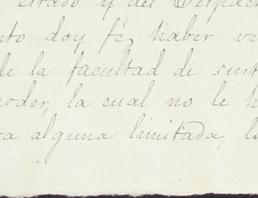 Estado y del Despac
nto doy fé, haber ve
de la facultad de sust
poder, la cual no le h
ra alguna limitada, l